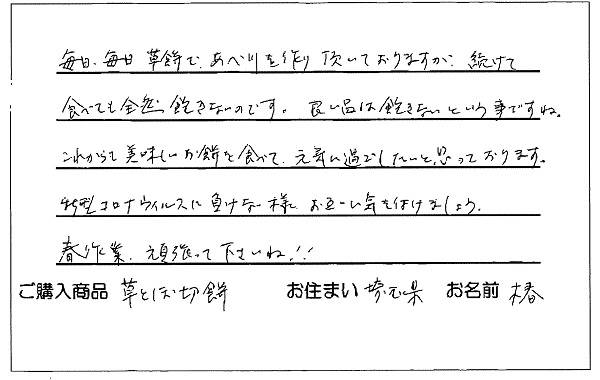 毎日、毎日 草餅で、あべ川を作り 頂いておりますが、続けて
食べても全然 飽きないのです。 良い品は飽きないという事ですね。
これからも美味しいお餅を食べて、元気に過ごしたいと思っております。
新型コロナウィルスに負けない様、お互いに気を付けましょう。
春作業、頑張って下さいね!!
ご購入商品 草とぼ切餅 お住まい 埼玉県 お名前 椿